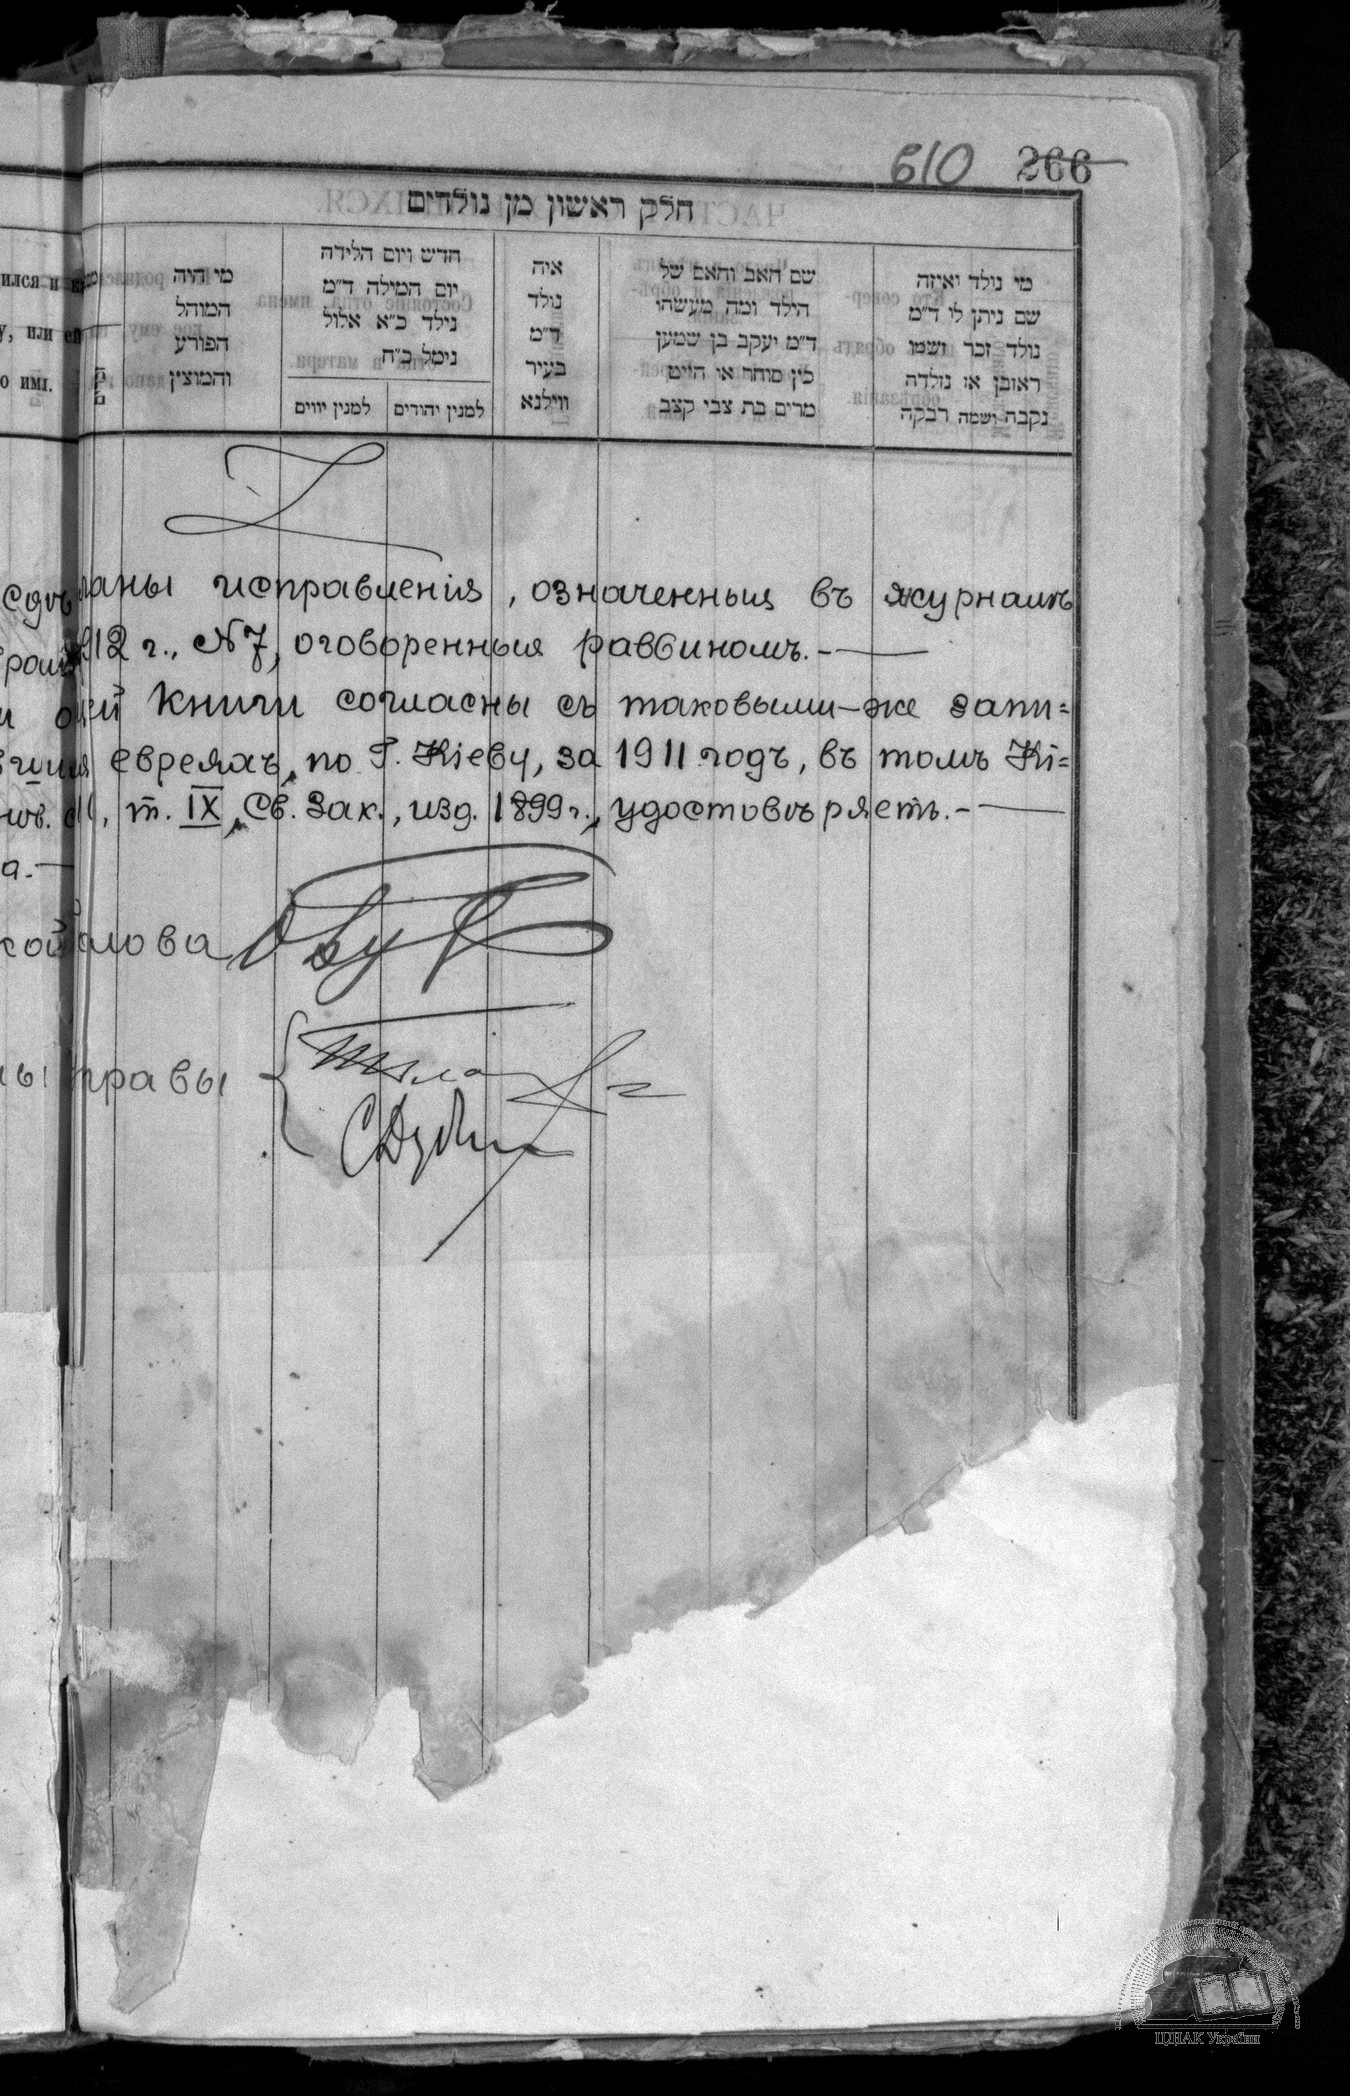 610 266
חלק ראשון מן נולדים
מי נולד ואיזה
שם ניתן לו ד״מ
נולד זכר ושמו
ראובן או נולדה
נקבה ושמה רבקה
שם האב והאם של
הילד ומה מעשהו
ד״מ יעקב בן שמעון
כין סוחר או הייט
מרים בת צבי קצב
איה
נולד
ד״מ
בעיר
ווילנא
חדש ויום הלידה
יום המילה ד״מ
נילד כ״א אלול
נימל כ״ח
למנין יהודים
למנין יווים
מי היה
המוהל
הפורע
והמוצין
ился и
у, или ей
о имя.
сдѣланы исправленія, означенныя въ журналѣ
1912 г., №7, оговоренныя раввиномъ.-
сей книги согласны съ таковыми-же запи=
евреяхъ, по Г. Кіеву, за 1911 годъ, въ томъ Кі=
т. IX, Св. Зак., изд. 1899 г., удостовѣряетъ.-
а.-
кой Голова
Управы
ЦДІАК України